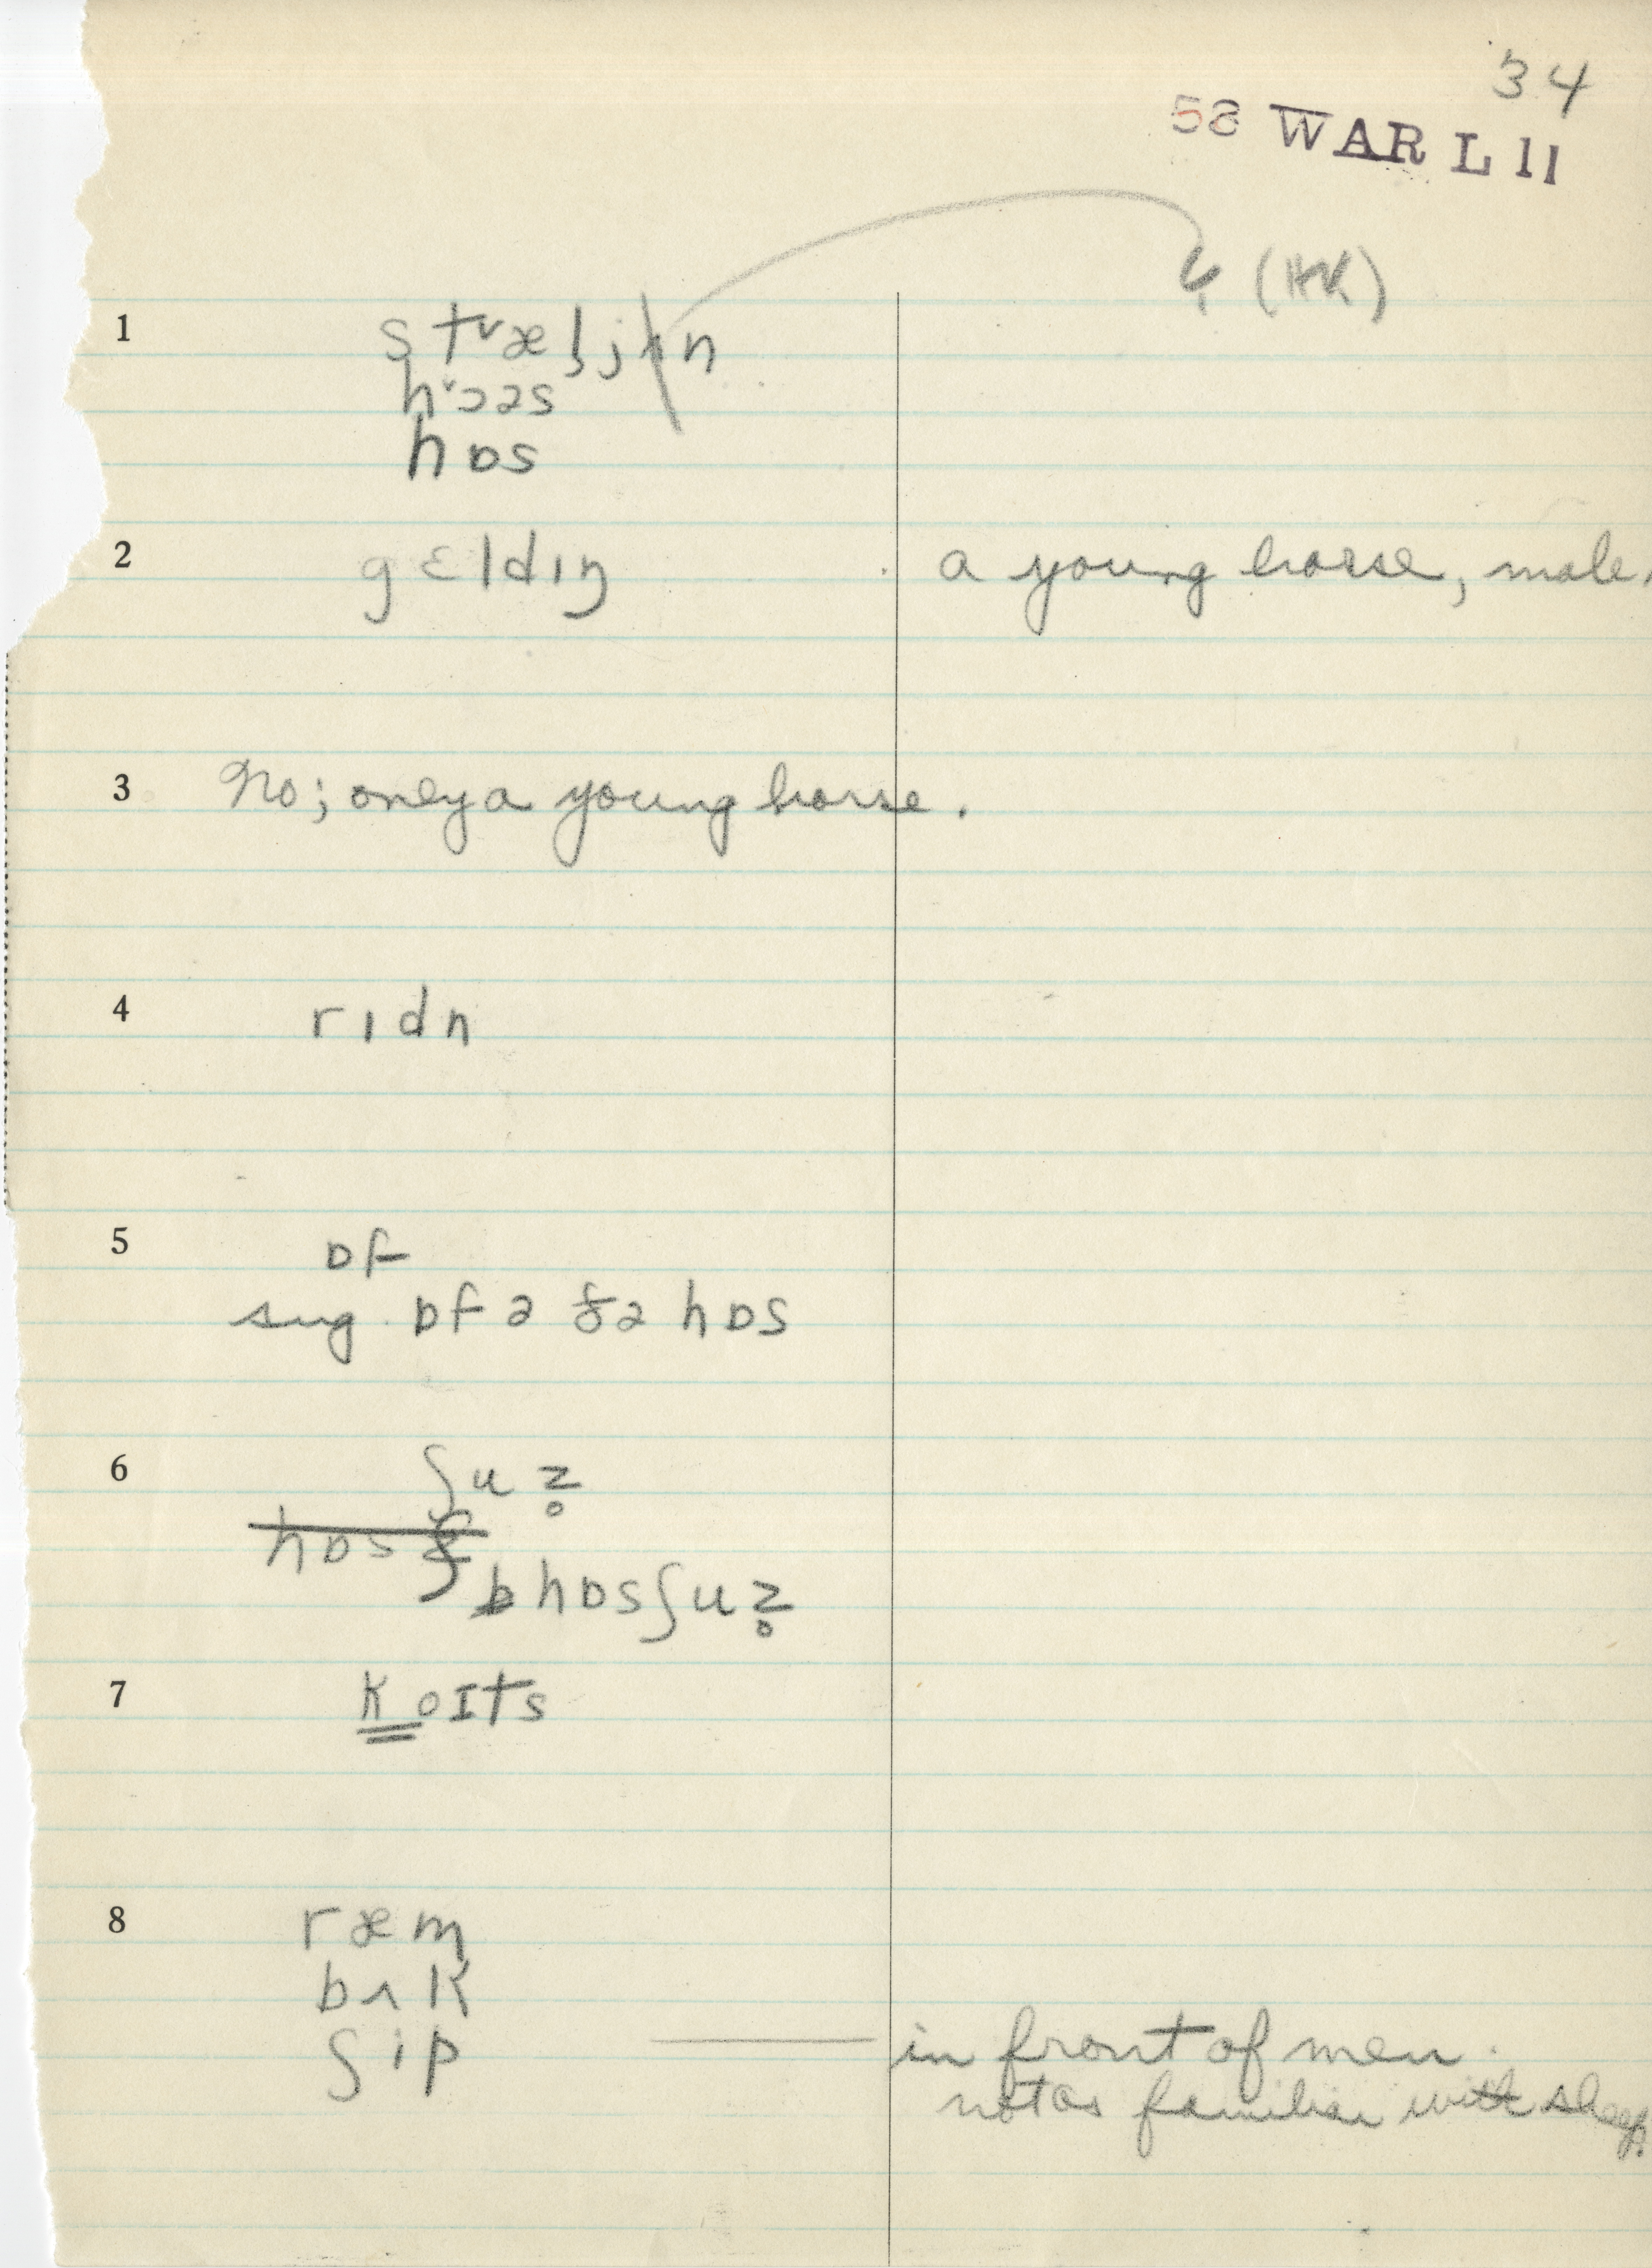 34
58 WAR L 11
(HK)
1 stᵛælj n
hᵛɔəs
hɒs
2 gɛldɪŋ a young horse, male.
3 No; only a young horse.
4 rɪdn
5 ɒf
sug. ɒf ə ðə hɒs
6 ʃuz̥
hɒsʃ
hɒsʃuz̥
7 koɪts
8 ræm
bʌk
ʃip in front of men.
not as familiar with sheep.